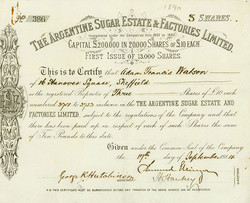 No. 386
5 SHARES.
THE ARGENTINE SUGAR ESTATE & FACTORIES LIMITED.
CAPITAL £200,000 IN 20,000 SHARES OF £10 EACH
FIRST ISSUE OF 13,000 SHARES.
This is to Certify that Adam Francis Watson
Square, Sheffield
is the registered Proprietor of Three Shares of £10 each
numbered 3751 to 3753 inclusive in THE ARGENTINE SUGAR ESTATE AND
FACTORIES LIMITED, subject to the regulations of the Company and that
there has been paid up in respect of each of such Shares the sum
of Ten Pounds to this date
Given under the Common Seal of the Company
the 17th day of September
George Hutchinson